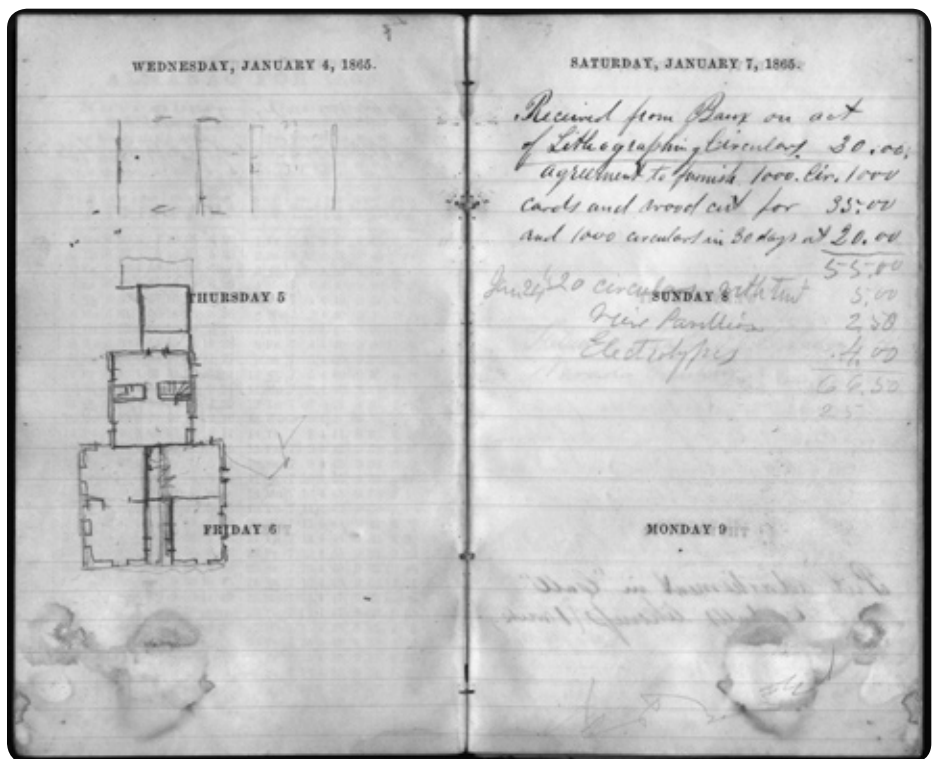 WEDNESDAY, JANUARY 4, 1865.
THURSDAY 5
FRIDAY 6
SATURDAY, JANUARY 7, 1865.
Received from on act
of Lithographing Circulars. 30.00,
agreement to furnish 1000. Cir. 1000
cards and wood cut for 35.00
and 1000 circulars in 30 days at 20.00
55.00
circulars with tint 5,00
SUNDAY 8
View Pavillion 2,50
Electrotypes 4.00
66.50
25
MONDAY 9